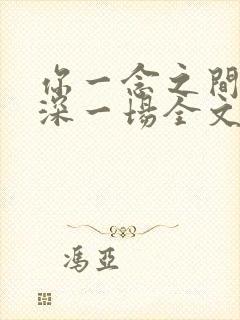 你一念之間
深一場全文
馮亞